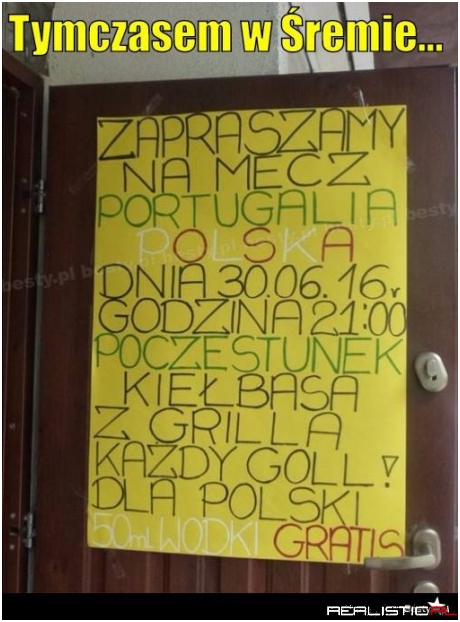 Tymczasem w Śremie...
ZAPRASZAMY
NA MECZ
PORTUGALIA
POLSKA
DNIA 30.06.16r
GODZINA 21:00
POCZESTUNEK
KIEŁBASA
Z GRILLA
KAŻDY GOLL!
DLA POLSKI
50ml WODKI GRATIS
besty.pl besty.pl besty.pl
REALISTIC